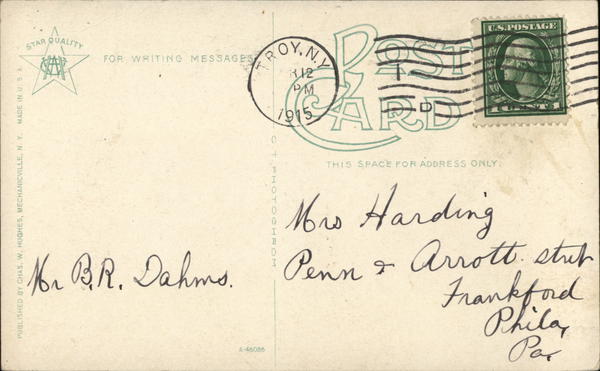 STAR QUALITY
FOR WRITING MESSAGES
POST
CARD
TROY, N.Y.
12
PM
1915
U.S. POSTAGE
1 CENT 1
THIS SPACE FOR ADDRESS ONLY.
Mrs Harding
Penn & Arrott street
Frankford
Phila,
Pa.
Mr B.R. Dahms.
A-46086
PUBLISHED BY CHAS. W. HUGHES, MECHANICVILLE, N.Y. MADE IN U.S.A.